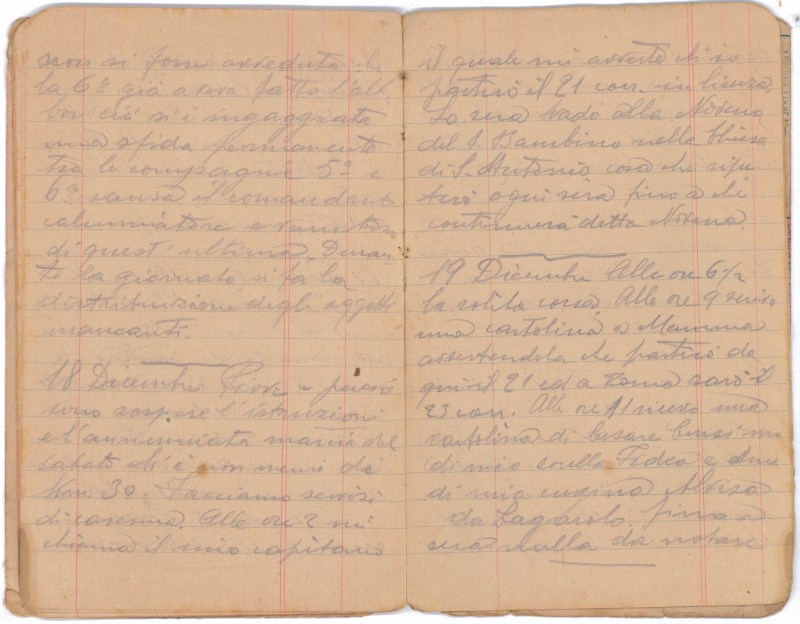 non si fosse avveduta che
la 6ª già aveva fatto l'alt,
con ciò si è ingaggiata
una sfida permanente
tra le compagnie 5ª e
6ª causa il comandante
calunniatore e vanitoso
di quest'ultima. Duran-
te la giornata si fà la
distribuzione degli oggetti
mancanti.
18 Dicembre Piove e perciò
sono sospese l'istruzioni
e l'annunciata marcia del
sabato ch'è non meno di
Km. 30. Facciamo servizi
di caserma. Alle ore 2 mi
chiama il mio capitano
il quale mi avverte ch'io
partirò il 21 corr. in licenza.
La sera vado alla Novena
del S. Bambino nella Chiesa
di S. Antonio, cosa che ripe
terò ogni sera fino a che
continuerà detta Novena.
19 Dicembre Alle ore 6 1/2
la solita corsa. Alle ore 9 scrivo
una cartolina a Mamma
avvertendola che partirò da
qui il 21 ed a Roma sarò il
23 corr. Alle ore 11 ricevo una
cartolina di Cesare
di mia sorella Fedea e
di mia cugina Alvisa
da Zagarolo fino a
sera nulla da notare